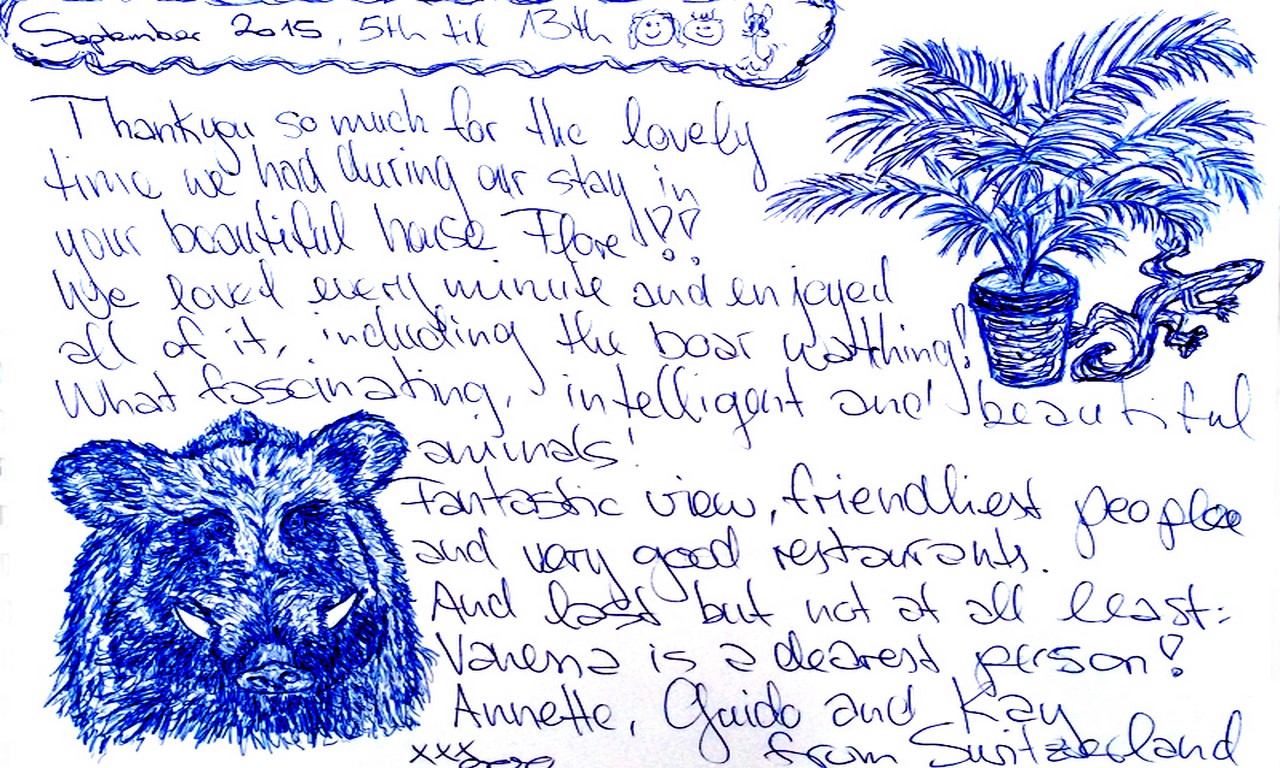 September 2015, 5th til 13th
Thankyou so much for the lovely
time we had during our stay in
your beautiful house Flore!!
We loved every minute and enjoyed
all of it, including the boar watching!
What fascinating, intelligent and beautiful
animals!
Fantastic view, friendliest people
and very good restaurants.
And last but not at all least:
Vanessa is a dearest person!
Annette, Guido and Kay
from Switzerland
xxx